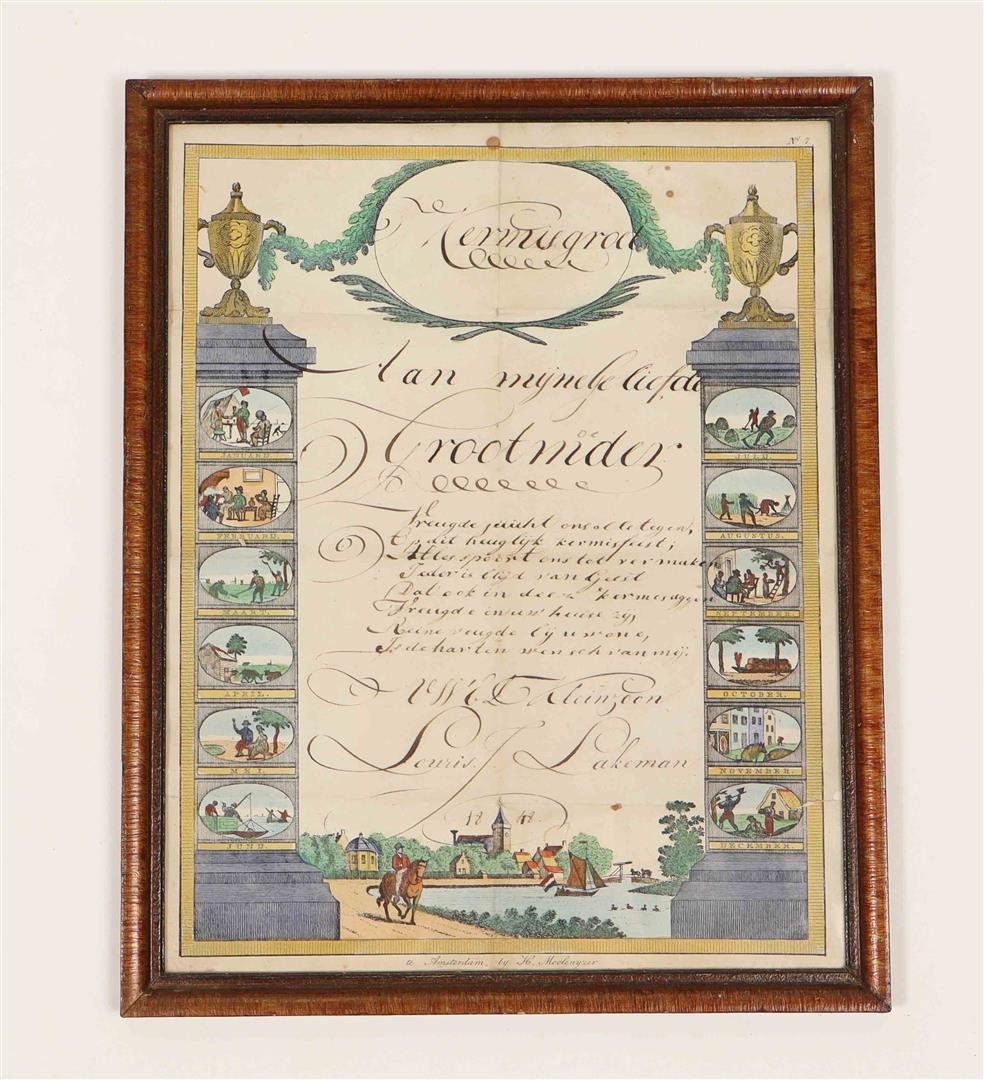 No 7.
Kermisgroet
Aan mijnelieliefde
Grootmoeder
Vreugde juicht ons al te tegen,
Op dit heuglijk kermisfeest;
Alles spoort ons tot vermaken
Ieder is blijd van Geest
Dat ook in deeze kermesdagen
Vreugde in uw huise zij,
Reine vreugde bij u wone,
Is de harten wensch van mij.
Kleinzoon
Louris. J. Lakeman
18
JANUARIJ.
FEBRUARIJ.
MAART.
APRIL.
MEI.
JUNIJ.
JULIJ.
AUGUSTUS.
SEPTEMBER.
OCTOBER.
NOVEMBER.
DECEMBER.
te Amsterdam, by H. Moolenyzer